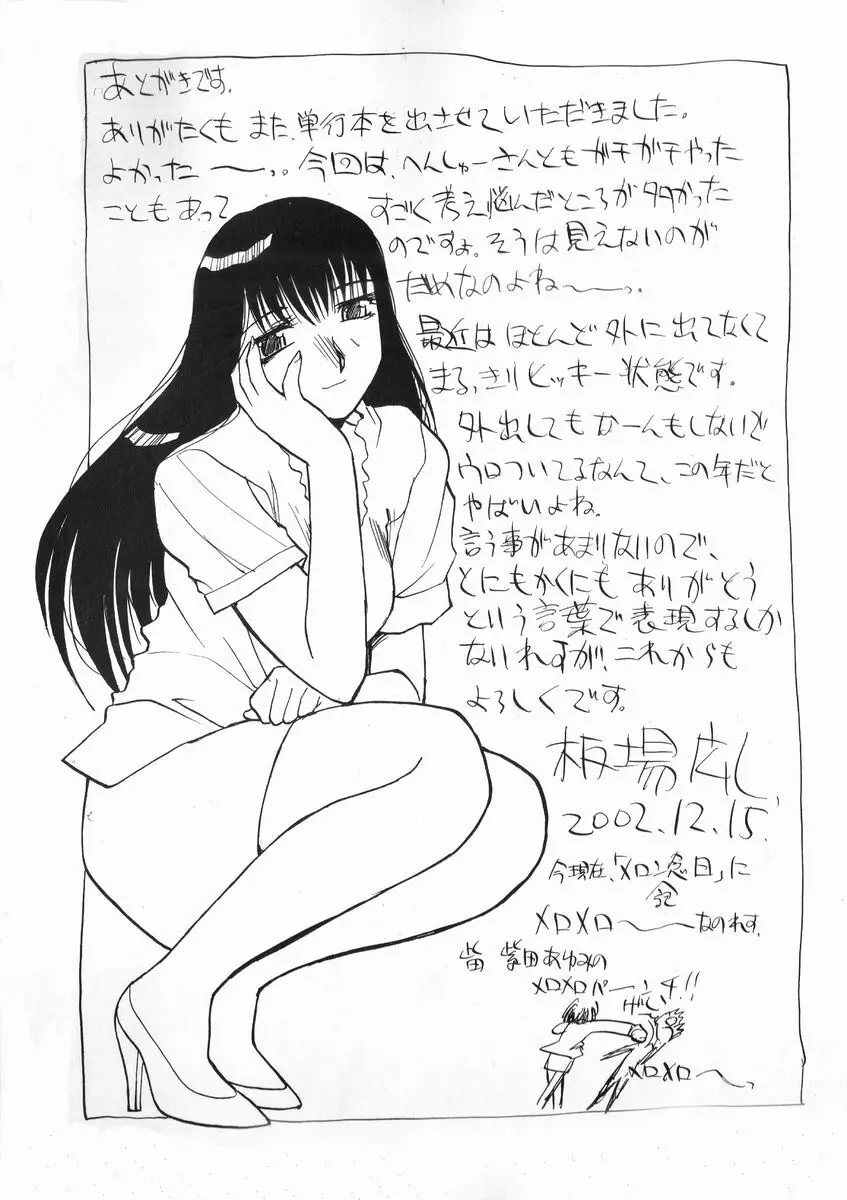 あとがきです。
ありがたくも また、単行本を出させていただきました。
よかった 〜〜っ。今回は、へんしゅーさんともガチガチやった
こともあって すごく考え悩んだところが多かった
のですよ。そうは見えないのが
だめなのよね〜〜っ。
最近は ほとんど外に出てなくて
まるっきりヒッキー状態です。
外出しても なーんもしないで
ウロついてるなんて、この年だと
やばいよね。
言う事があまりないので、
とにもかくにも ありがとう
という言葉で表現するしか
ないれすが、これからも
よろしくです。
板場広し
2002.12.15.
今現在、「メロン記念日」に
メロメロ〜〜なのれす。
柴田あゆみの
メロメロパーンチ!!
メロメロ〜っ